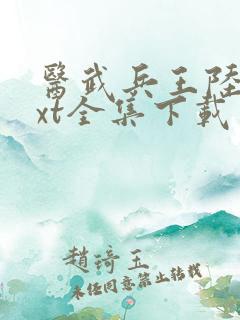 醫武兵王陸
xt全集下載
趙琦玉
未經同意禁止轉載